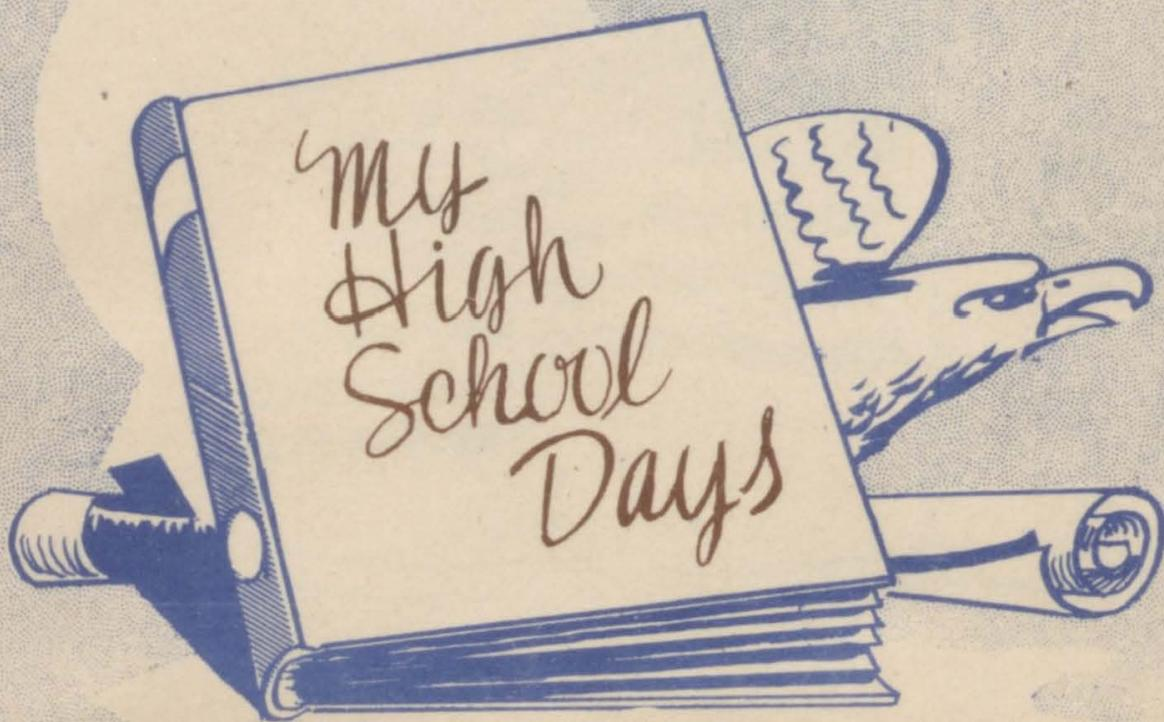 My
High
School
Days